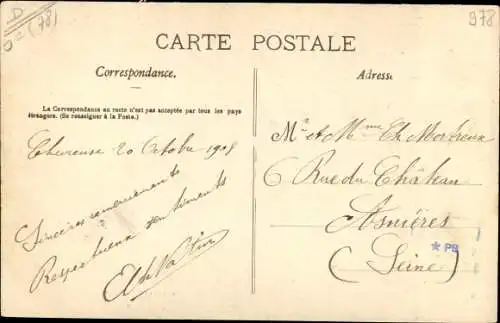 D
(78)
978
CARTE POSTALE
Correspondance.
Adresse
La Correspondance au recto n'est pas acceptée par tous les pays
étrangers. (Se renseigner à la Poste.)
Chevreuse 20 Octobre 1908
Sincères remerciements
Respectueux sentiments
Mr et Mme Ch
6 Rue du Château
Asnières
* PB
(Seine)